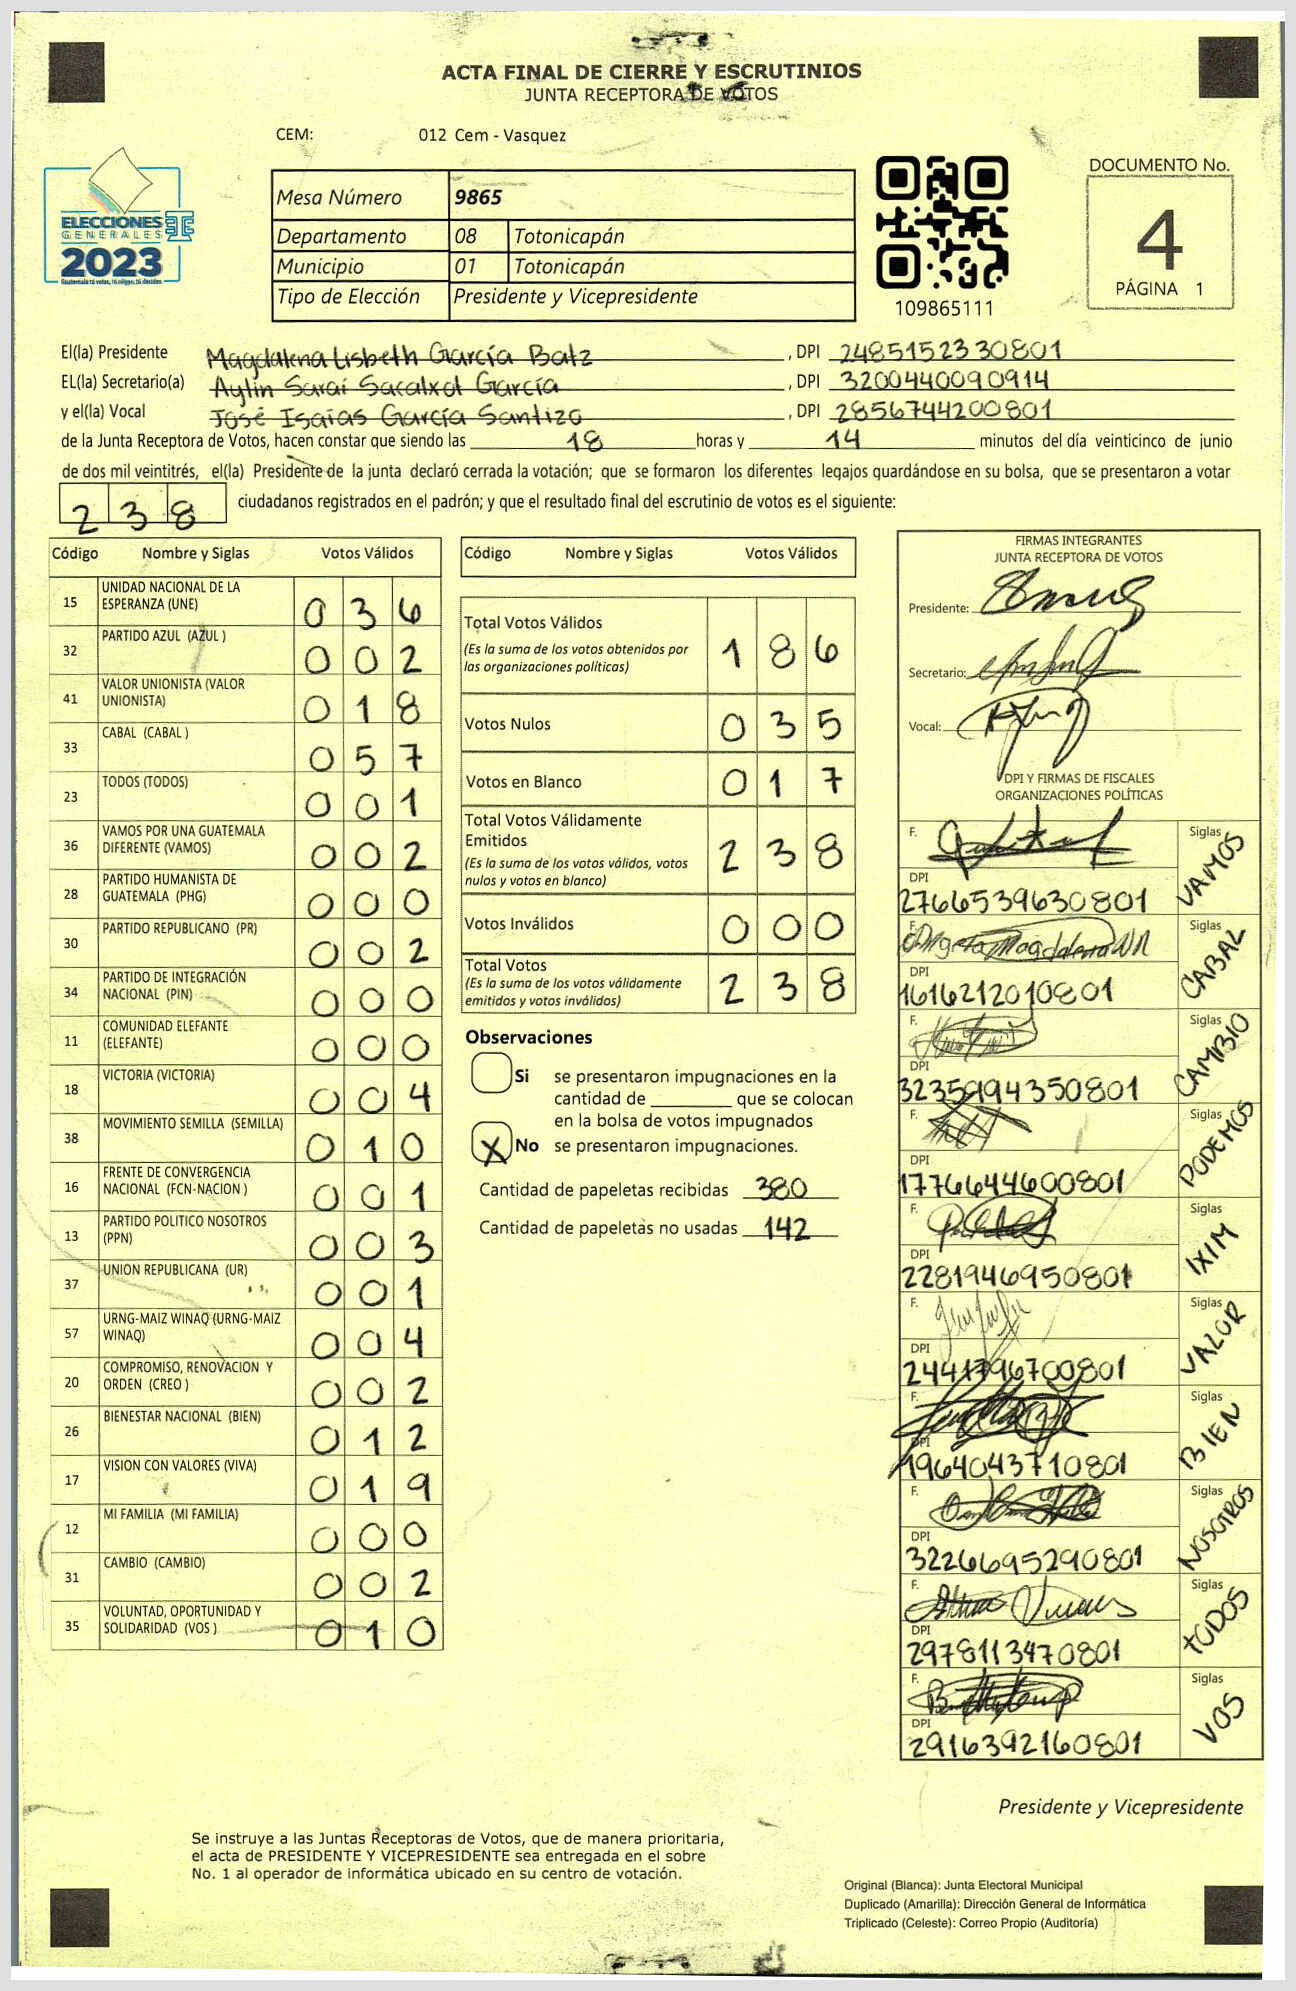 ACTA FINAL DE CIERRE Y ESCRUTINIOS
JUNTA RECEPTORA DE VOTOS
CEM: 012 Cem - Vasquez
ELECCIONES
GENERALES
2023
Guatemala tú votas, tú eliges, tú decides
Mesa Número 9865
Departamento 08 Totonicapán
Municipio 01 Totonicapán
Tipo de Elección Presidente y Vicepresidente
109865111
DOCUMENTO No.
4
PÁGINA 1
El(la) Presidente Magdalena Lisbeth García Batz, DPI 2485152330801
EL(la) Secretario(a) Aylin Saraí Sacalxot García, DPI 3200440090914
y el(la) Vocal José Isaías García Santizo, DPI 2856744200801
de la Junta Receptora de Votos, hacen constar que siendo las 18 horas y 14 minutos del día veinticinco de junio
de dos mil veintitrés, el(la) Presidente de la junta declaró cerrada la votación; que se formaron los diferentes legajos guardándose en su bolsa, que se presentaron a votar
238 ciudadanos registrados en el padrón; y que el resultado final del escrutinio de votos es el siguiente:
Código Nombre y Siglas Votos Válidos
15 UNIDAD NACIONAL DE LA ESPERANZA (UNE) 036
32 PARTIDO AZUL (AZUL ) 002
41 VALOR UNIONISTA (VALOR UNIONISTA) 018
33 CABAL (CABAL ) 057
23 TODOS (TODOS) 001
36 VAMOS POR UNA GUATEMALA DIFERENTE (VAMOS) 002
28 PARTIDO HUMANISTA DE GUATEMALA (PHG) 000
30 PARTIDO REPUBLICANO (PR) 002
34 PARTIDO DE INTEGRACIÓN NACIONAL (PIN) 000
11 COMUNIDAD ELEFANTE (ELEFANTE) 000
18 VICTORIA (VICTORIA) 004
38 MOVIMIENTO SEMILLA (SEMILLA) 010
16 FRENTE DE CONVERGENCIA NACIONAL (FCN-NACION ) 001
13 PARTIDO POLITICO NOSOTROS (PPN) 003
37 UNION REPUBLICANA (UR) 001
57 URNG-MAIZ WINAQ (URNG-MAIZ WINAQ) 004
20 COMPROMISO, RENOVACION Y ORDEN (CREO ) 002
26 BIENESTAR NACIONAL (BIEN) 012
17 VISION CON VALORES (VIVA) 019
12 MI FAMILIA (MI FAMILIA) 000
31 CAMBIO (CAMBIO) 002
35 VOLUNTAD, OPORTUNIDAD Y SOLIDARIDAD (VOS ) 010
Código Nombre y Siglas Votos Válidos
Total Votos Válidos 186
(Es la suma de los votos obtenidos por
las organizaciones políticas)
Votos Nulos 035
Votos en Blanco 017
Total Votos Válidamente
Emitidos 238
(Es la suma de los votos válidos, votos
nulos y votos en blanco)
Votos Inválidos 000
Total Votos 238
(Es la suma de los votos válidamente
emitidos y votos inválidos)
Observaciones
Si se presentaron impugnaciones en la
cantidad de ________ que se colocan
en la bolsa de votos impugnados
X No se presentaron impugnaciones.
Cantidad de papeletas recibidas 380
Cantidad de papeletas no usadas 142
FIRMAS INTEGRANTES
JUNTA RECEPTORA DE VOTOS
Presidente:
Secretario:
Vocal:
DPI Y FIRMAS DE FISCALES
ORGANIZACIONES POLÍTICAS
F. Siglas VAMOS
DPI
2766539630801
F. Siglas CABAL
DPI
1616212010801
F. Siglas CAMBIO
DPI
3235994350801
F. Siglas PODEMOS
DPI
1776644600801
F. Siglas IXIM
DPI
2281946950801
F. Siglas VALOR
DPI
2441796700801
F. Siglas BIEN
DPI
1964043710801
F. Siglas NOSOTROS
DPI
3226695290801
F. Siglas TODOS
DPI
2978113470801
F. Siglas VOS
DPI
2916392160801
Presidente y Vicepresidente
Se instruye a las Juntas Receptoras de Votos, que de manera prioritaria,
el acta de PRESIDENTE Y VICEPRESIDENTE sea entregada en el sobre
No. 1 al operador de informática ubicado en su centro de votación.
Original (Blanca): Junta Electoral Municipal
Duplicado (Amarilla): Dirección General de Informática
Triplicado (Celeste): Correo Propio (Auditoría)